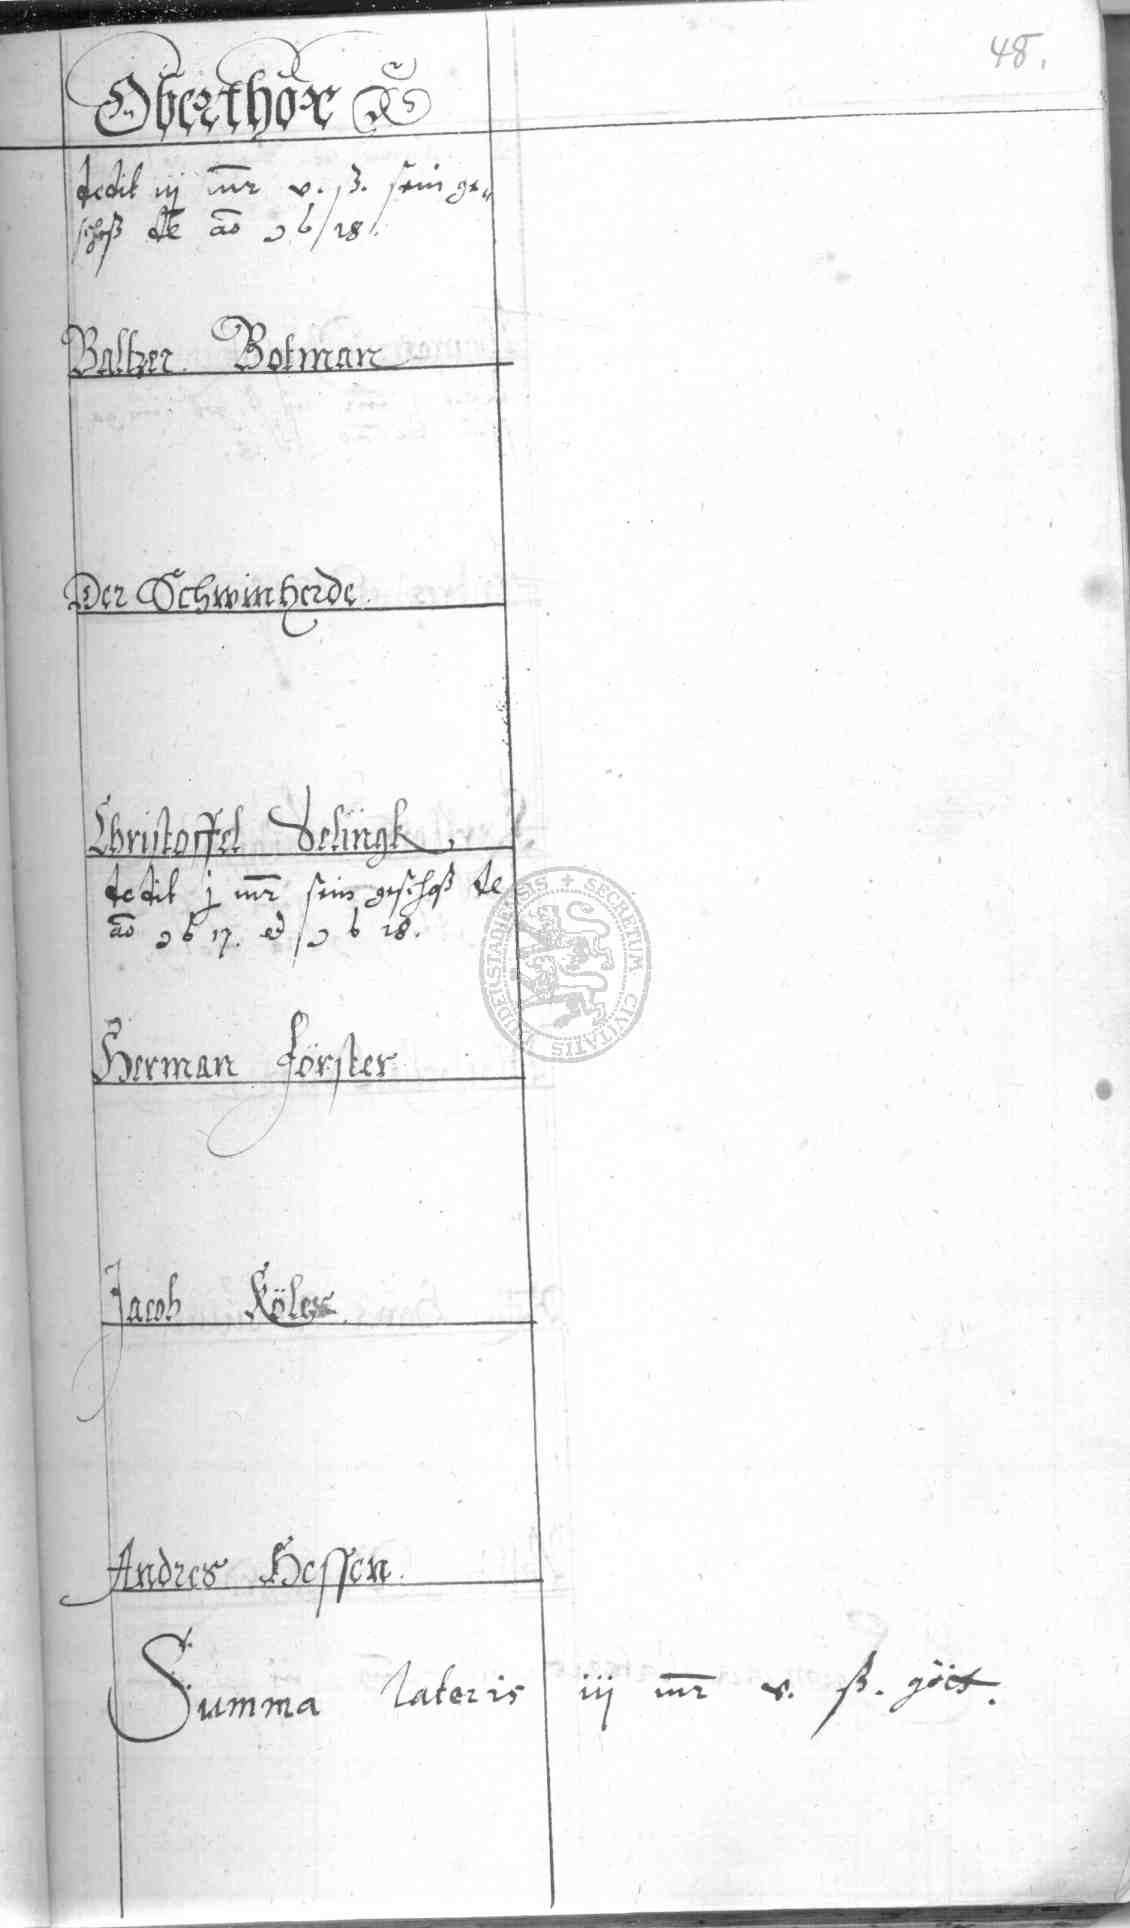 48.
Oberthör
dedit iij mr v. ß. sein ge„
schoß de ao 18.
Baltzer Botman
Der Schwinherde.
Christoffel Velingk.
dedit j mr sein geschoß de
ao 17. et 18.
Herman Förster
Jacob Köler.
Andres Hessen.
Summa lateris iij mr v. ß. gött.
SECRETUM CIVITATIS DUDERSTADIENSIS